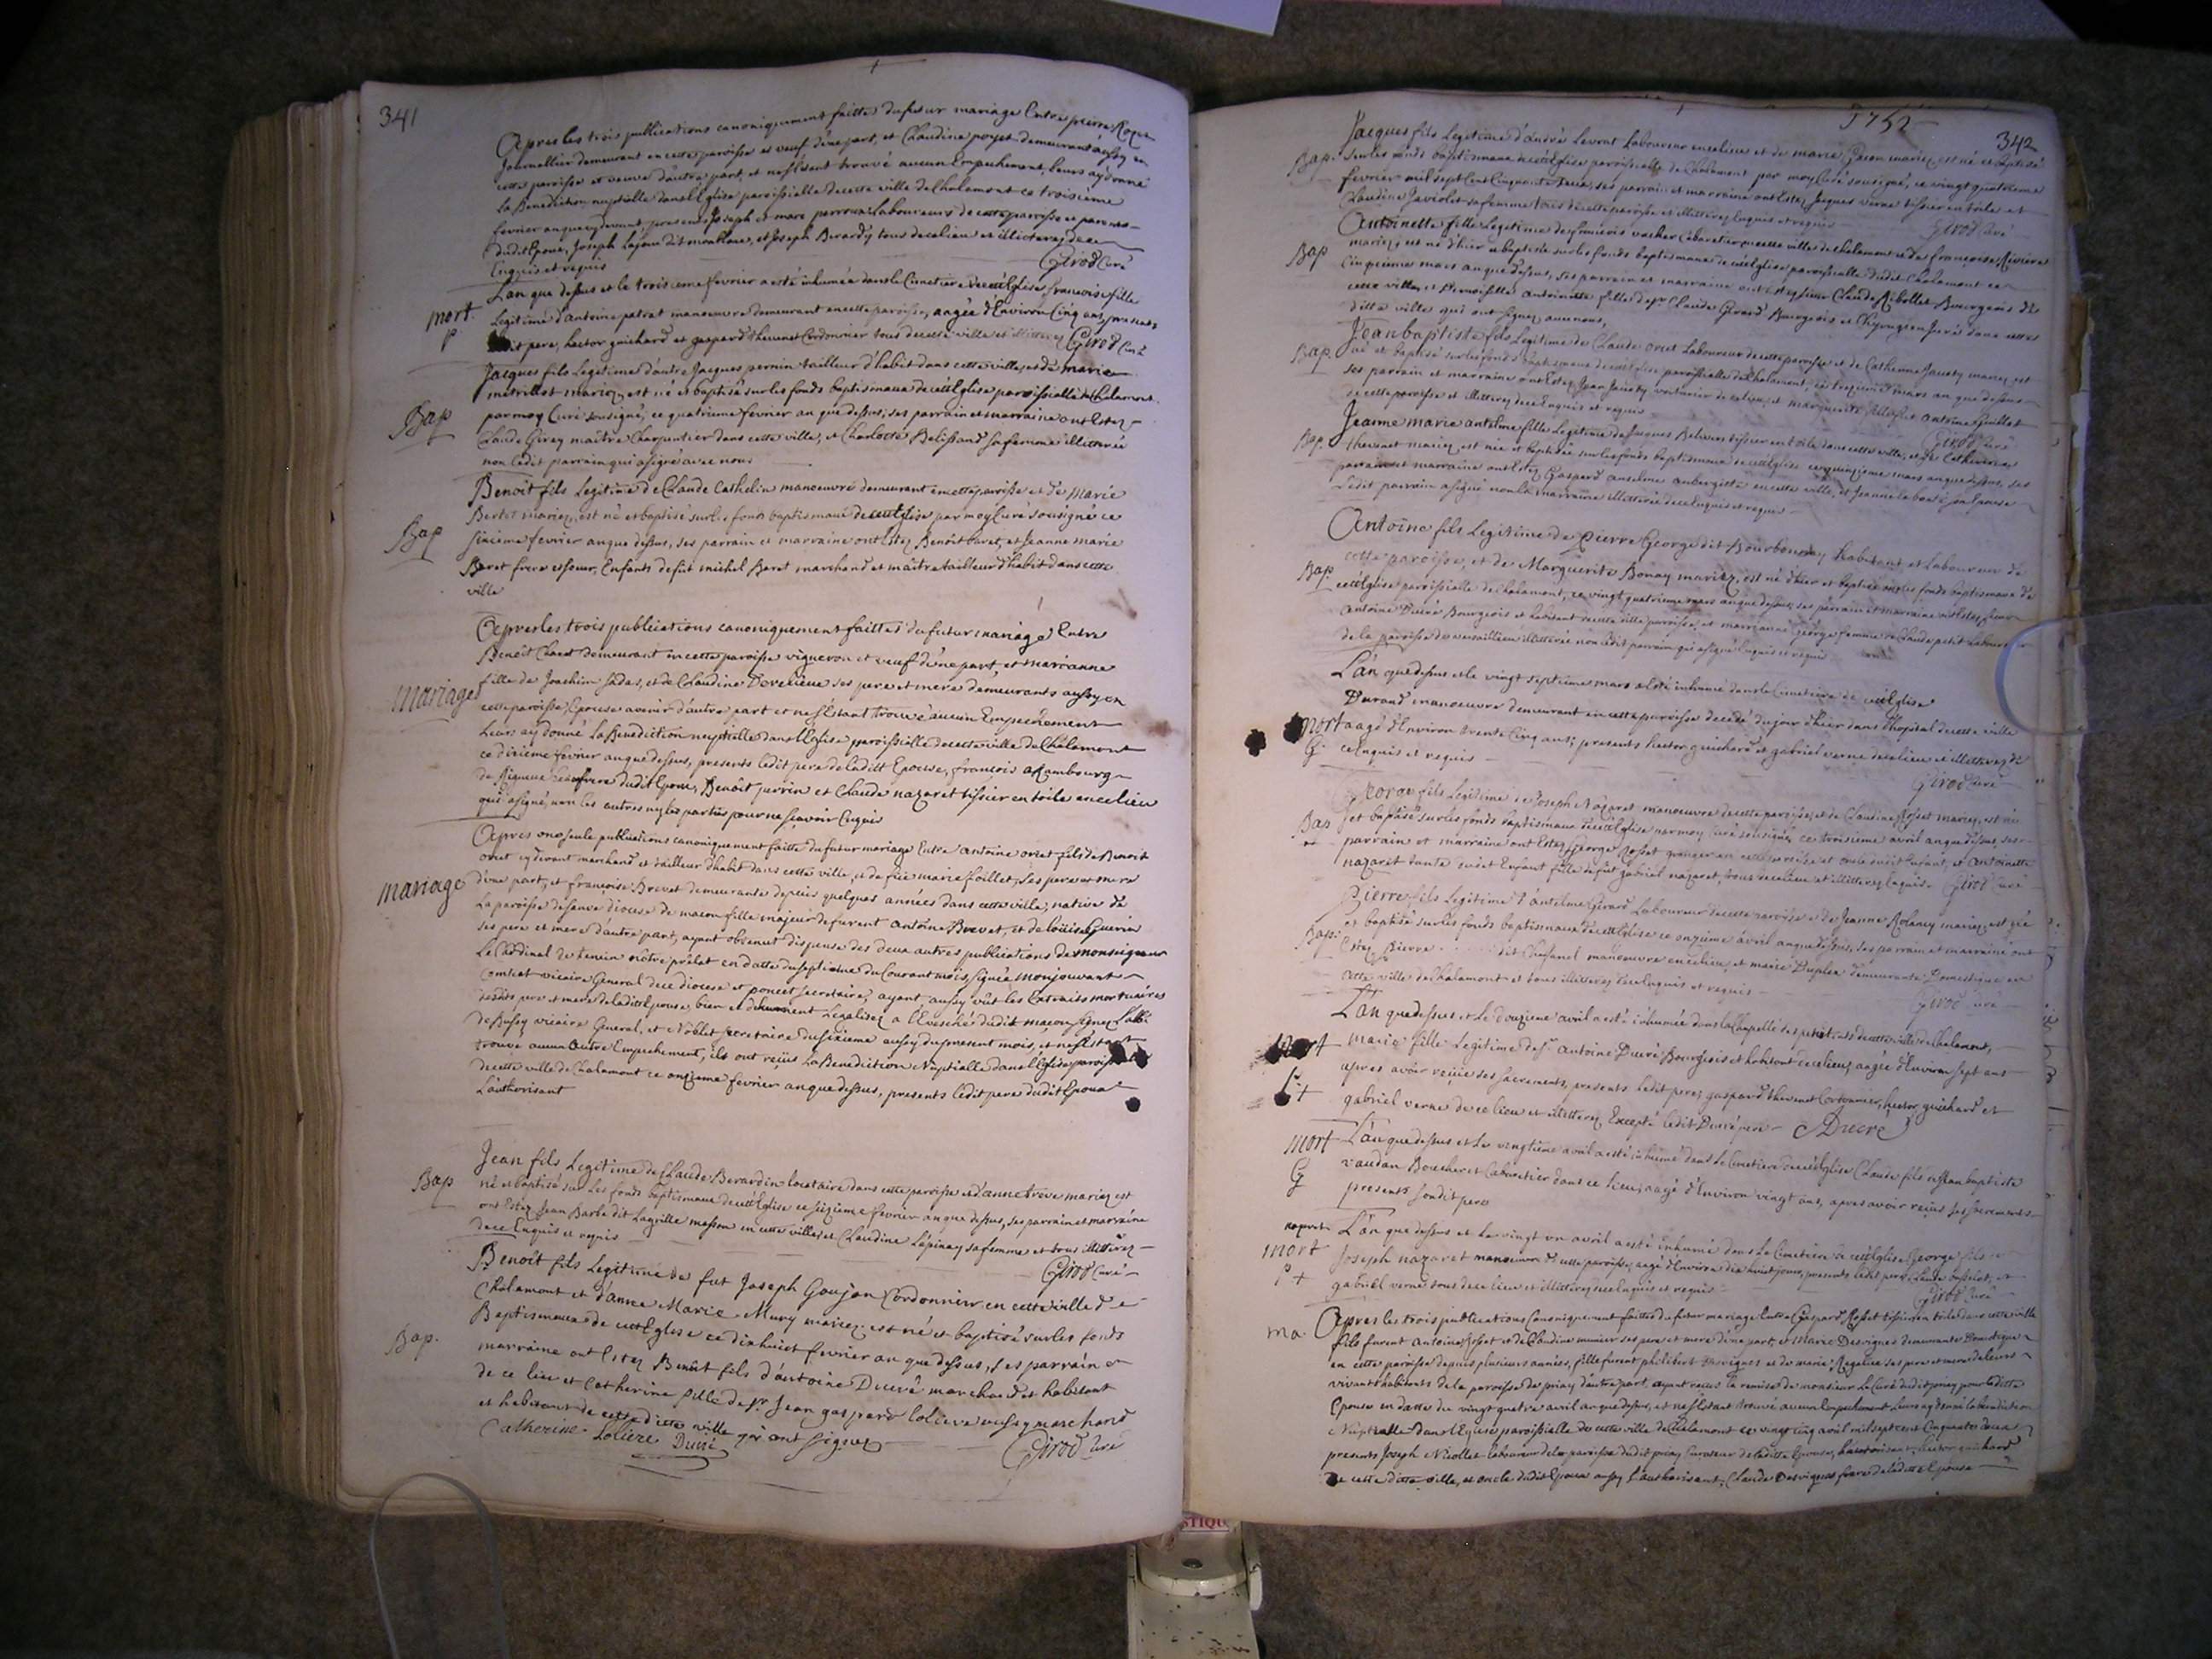 341
Apres les trois publications canoniquement faittes du futur mariage Entre pierre
Journallier demeurant en cette paroisse et veuf d'une part, et Claudine poyet demeurant aussy en
cette paroisse et veuve d'autre part, et ne s'Estant trouvé aucun Empechement, leurs ay donné
la Benediction nuptialle dans l'Eglise paroissialle de cette ville de Chalamont ce troisieme
fevrier an que cy devant, presents Joseph et marc Laboureurs de cette paroisse et parents
dudit Epoux, Joseph dit et Joseph Berardy tous de ce lieu et illiterez de ce
Enquis et requis Girod Curé
mort
L'an que dessus et le troisieme fevrier a esté inhumée dans le Cimetiere de cett'Eglise francoise fille
Legitime d'antoine patrat manoeuvre demeurant en cette paroisse, aagée d'Environ Cinq ans, presents
pere, hector guichard et gaspard thevenet Cordonnier tous de cette ville et illitterez Girod Curé
Bap
Jacques fils Legitime d'autre Jacques pernin tailleur d'habit dans cette ville, et de marie
metrillot mariez, est né et baptisé sur les fonds baptismaux de cett'Eglise paroissialle de Chalamont
par moy Curé sousigné, ce quatrieme fevrier an que dessus, ses parrain et marraine ont Estez
Claude Girey maître Charpentier dans cette ville, et Charlotte Belissand sa femme illitterée
non ledit parrain qui a signé avec nous
Bap
Benoit fils Legitime de Claude Cathelin manoeuvre demeurant en cette paroisse et de Marie
Bertet mariez, est né et baptisé sur les fonds baptismaux de cett'Eglise par moy Curé sousigné ce
sixieme fevrier an que dessus, ses parrain et marraine ont Estez Benoît Baret, et Jeanne Marie
Baret frere et soeur, Enfants de fut michel Baret marchand et maître tailleur d'habit dans cette
ville
mariage
Apres les trois publications canoniquement faittes du futur mariage Entre
Benoît demeurant en cette paroisse vigneron et veuf d'une part, et marianne
fille de Joachim Sadas, et de Claudine ses pere et mere demeurants aussy en
cette paroisse Epouse avenir d'autre part et ne s'Estant trouvé aucun Empechement
Leurs ay donné La Benediction nuptialle dans l'Eglise paroissialle de cette ville de Chalamont
ce dixieme fevrier an que dessus, presents ledit pere de laditte Epouse, francois
beaufrere dudit Epoux, Benoît perrin et Claude nazaret tissier en toile en ce lieu
qui a signé, non les autres ny les parties pour ne sçavoir Enquis
mariage
Apres une seule publications canoniquement faitte du futur mariage Entre antoine oriet fils de Benoit
oriet cy devant marchand et tailleur d'habit dans cette ville, et de füe marie foillet, ses pere et mere
d'une part, et françoise Brevet demeurante depuis quelques années dans cette ville, native de
La paroisse de diocese de macon fille majeur de furent antoine Brevet, et de loüise Guerin
ses pere et mere d'autre part, ayant obtenut dispense des deux autres publications de monseigneur
Le Cardinal de tencin nôtre prelat en datte du septieme du Courant mois, signée monjouvant
vicaire General de ce diocese et poncet secretaire, ayant aussy vût les Extraits mortuaires
desdits pere et mere de laditte Epouse, bien et dehument Legalisez a l'Evesché dudit macon, signez l'abbé
de Bussy vicaire General, et Noblet secretaire du sixieme aussy du present mois, et ne s'Estant
trouvé aucun autre Empechement, ils ont reçus La Benediction Nuptialle dans l'Eglise
de cette ville de Chalamont ce onzieme fevrier an que dessus, presents ledit pere dudit Epoux
L'authorisant
Bap
Jean fils Legitime de Claude Berardin locataire dans cette paroisse et d'anne mariez est
né et baptisé sur les fonds baptismaux de cett'Eglise ce seizieme fevrier an que dessus, ses parrain et marraine
ont Estez Jean Barbe dit Lagrille masson en cette ville, et Claudine Lépinay sa femme et tous illitterez
de ce Enquis et requis Girod Curé
Bap.
Benoît fils Legitime de fut Joseph Goujon Cordonnier en cette ville de
Chalamont et d'anne Marie Mury mariez est né et baptisé sur les fonds
Baptismaux de cett'Eglise ce dixhuict fevrier an que dessus, ses parrain et
marraine ont Estez Benoît fils d'antoine Ducré marchand et habitant
de ce lieu et Catherine fille de sr Jean gaspard loliere aussy marchand
et habitant de cette ditte ville qui ont signez
Catherine Loliere Ducré Girod Curé
1752
342
Bap.
Jacques fils Legitime d'andré Levrat Laboureur en ce lieu et de marie mariez, est né et baptisé
sur les fonds baptismaux de cett'Eglise paroissialle de Chalamont par moy Curé sousigné, ce vingt quatrieme
fevrier mil sept Cent Cinquante deux, ses parrain et marraine ont Estez Jacques verne tissier en toile et
Claudine sa femme tous de cette paroisse et illitterez Enquis et requis Girod Curé
Bap
Antoinette fille Legitime de vacher Cabaretier en cette ville de chalamont et de françoise Riviere
mariez, est né d'hier et baptisée sur les fonds baptismaux de cett'Eglise paroissialle dudit Chalamont ce
Cinquieme mars an que dessus, ses parrain et marraine ont Estez sieur Claude Ribollet Bourgeois de
cette ville, et Demoiselle antoinette fille de sr Claude Girard Bourgeois et Chyrurgien Juré dans cette
ditte ville qui ont signez avec nous,
Bap.
Jean baptiste fils Legitime de Claude oriet Laboureur de cette paroisse et de Catherine Janety mariez, est
né et baptisé sur les fonds baptismaux de cett'Eglise paroissialle de Chalamont, ce mars an que dessus
ses parrain et marraine ont Estez Jean Janety voiturier de ce lieu, et marguerite fille antoine Guillot
de cette paroisse et illitterez de ce Enquis et requis Girod Curé
Bap.
Jeanne marie antelme fille Legitime de Jacques tissier en toile dans cette ville, et de Catherine
thevenet mariez est née et baptisée sur les fonds baptismaux de cett'Eglise ce quinzieme mars an que dessus, ses
parrain et marraine ont Estez Gaspard anselme aubergiste en cette ville, et Jeanne son Epouse
Ledit parrain a signé non la marraine illitterée de ce Enquis et requis
Bap.
Antoine fils Legitime de Pierre George dit Bourbonnay habitant et Laboureur de
cette paroisse, et de Marguerite Bonay mariez, est né d'hier et baptisé sur les fonds baptismaux de
cett'Eglise paroissialle de chalamont, ce vingt quatrieme mars an que dessus, ses parrain et marraine ont Estez sieur
antoine Ducré Bourgeois et habitant de cette ditte paroisse, et marrianne George femme de Claude petit Laboureur
de la paroisse de versaillieu illitterée non ledit parrain qui a signé Enquis et requis
mort
L'an que dessus et le vingt septieme mars a esté inhumé dans le Cimetiere de cett'Eglise
Durand manoeuvre demeurant en cette paroisse decedé du jour d'hier dans l'hopital de cette ville
aagé d'Environ trente Cinq ans, presents hector guichard et gabriel verne de ce lieu et illitterez de
ce Enquis et requis Girod Curé
Bap
George fils Legitime de Joseph Nazaret manoeuvre de cette paroisse, et de Claudine Rosset mariez, est né
et baptisé sur les fonds baptismaux de cett'Eglise par moy Curé sousigné, ce troisieme avril an que dessus, ses
parrain et marraine ont Estez George Rosset granger en cette paroisse et oncle dudit Enfant, et antoinette
nazaret tante dudit Enfant fille de fut gabriel nazaret, tous de ce lieu et illitterez Enquis. Girod Curé
Bap.
Pierre fils Legitime d'antelme Girard Laboureur de cette paroisse et de Jeanne Rolancy mariez, est né
et baptisé sur les fonds baptismaux de cett'Eglise ce onzieme avril an que dessus, ses parrain et marraine ont
Estez Pierre dit Chasanel manoeuvre en ce lieu, et marie Duplex demeurante Domestique en
cette ville de Chalamont et tous illitterez de ce Enquis et requis Girod Curé
mort
L'an que dessus et le douzieme avril a esté inhumée dans la Chapelle des penitents de cette ville de Chalamont,
marie fille Legitime de sr. antoine Ducré Bourgeois et habitant de ce lieu, aagée d'Environ sept ans
apres avoir reçüe ses sacrements, presents ledit pere, gaspard thevenet Cordonnier, hector guichard et
gabriel verne de ce lieu et illitterez Excepté ledit Ducré pere Ducré
mort
G
L'an que dessus et le vingtieme avril a esté inhumé dans le Cimetiere de cett'Eglise Claude fils de Jean baptiste
vaudan Boucher et Cabaretier dans ce lieu, aagé d'Environ vingt ans, apres avoir reçus ses sacrements
presents sondit pere
mort
L'an que dessus et le vingt un avril a esté inhumé dans le Cimetiere de cett'Eglise George fils de
Joseph nazaret manoeuvre de cette paroisse, aagé d'Environ dix huit jours, presents ledit pere, Claude et
gabriel verne tous de ce lieu et illitterez de ce Enquis et requis Girod Curé
ma.
Apres les trois publications Canoniquement faittes du futur mariage Entre Gaspard Rosset tissier en toile dans cette ville
fils furent antoine Rosset et de Claudine munier ses pere et mere d'une part, et Marie Desvignes demeurante Domestique
en cette paroisse depuis plusieurs années, fille furent philibert Desvignes et de marie ses pere et mere de leurs
vivants habitants de la paroisse de priay d'autre part, ayant reçus la remise de monsieur Le Curé dudit priay pour laditte
Epouse en datte du vingt quatre avril an que dessus, et ne s'Estant trouvé aucun Empechement Leurs ay donné la benediction
Nuptialle dans l'Eglise paroissialle de cette ville de Chalamont ce vingt cinq avril mil sept cent Cinquante deux
presents Joseph Nicollet Laboureur de la paroisse dudit priay Curateur de laditte Epouse, L'authorisant, hector guichard
de cette ditte ville, et oncle dudit Epoux aussy L'authorisant, Claude Desvignes frere de laditte Epouse